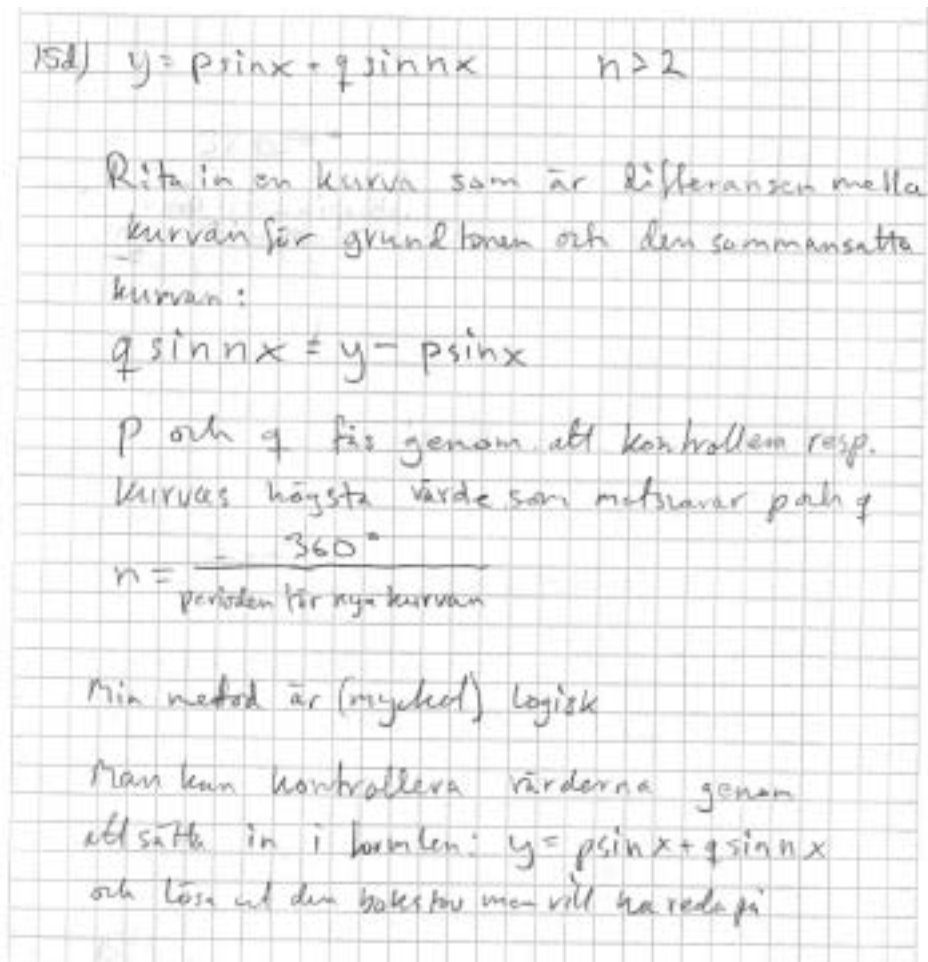 15d) y = p sin x + q sin nx n ≥ 2
Rita in en kurva som är differansen mella
kurvan för grundtonen och den sammansatta
kurvan:
q sin nx = y - p sin x
p och q fås genom att kontrollera resp.
kurvas högsta värde som motsvarar p och q
n = 360°
perioden för nya kurvan
Min metod är (mycket) logisk
Man kan kontrollera värderna genom
att sätta in i formlen: y = p sin x + q sin nx
och lösa ut den bokstav man vill ha reda på